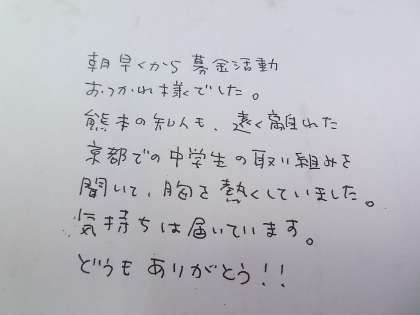 朝早くから募金活動
おつかれ様でした。
熊本の知人も、遠く離れた
京都での中学生の取り組みを
聞いて、胸を熱くしていました。
気持ちは届いています。
どうもありがとう!!